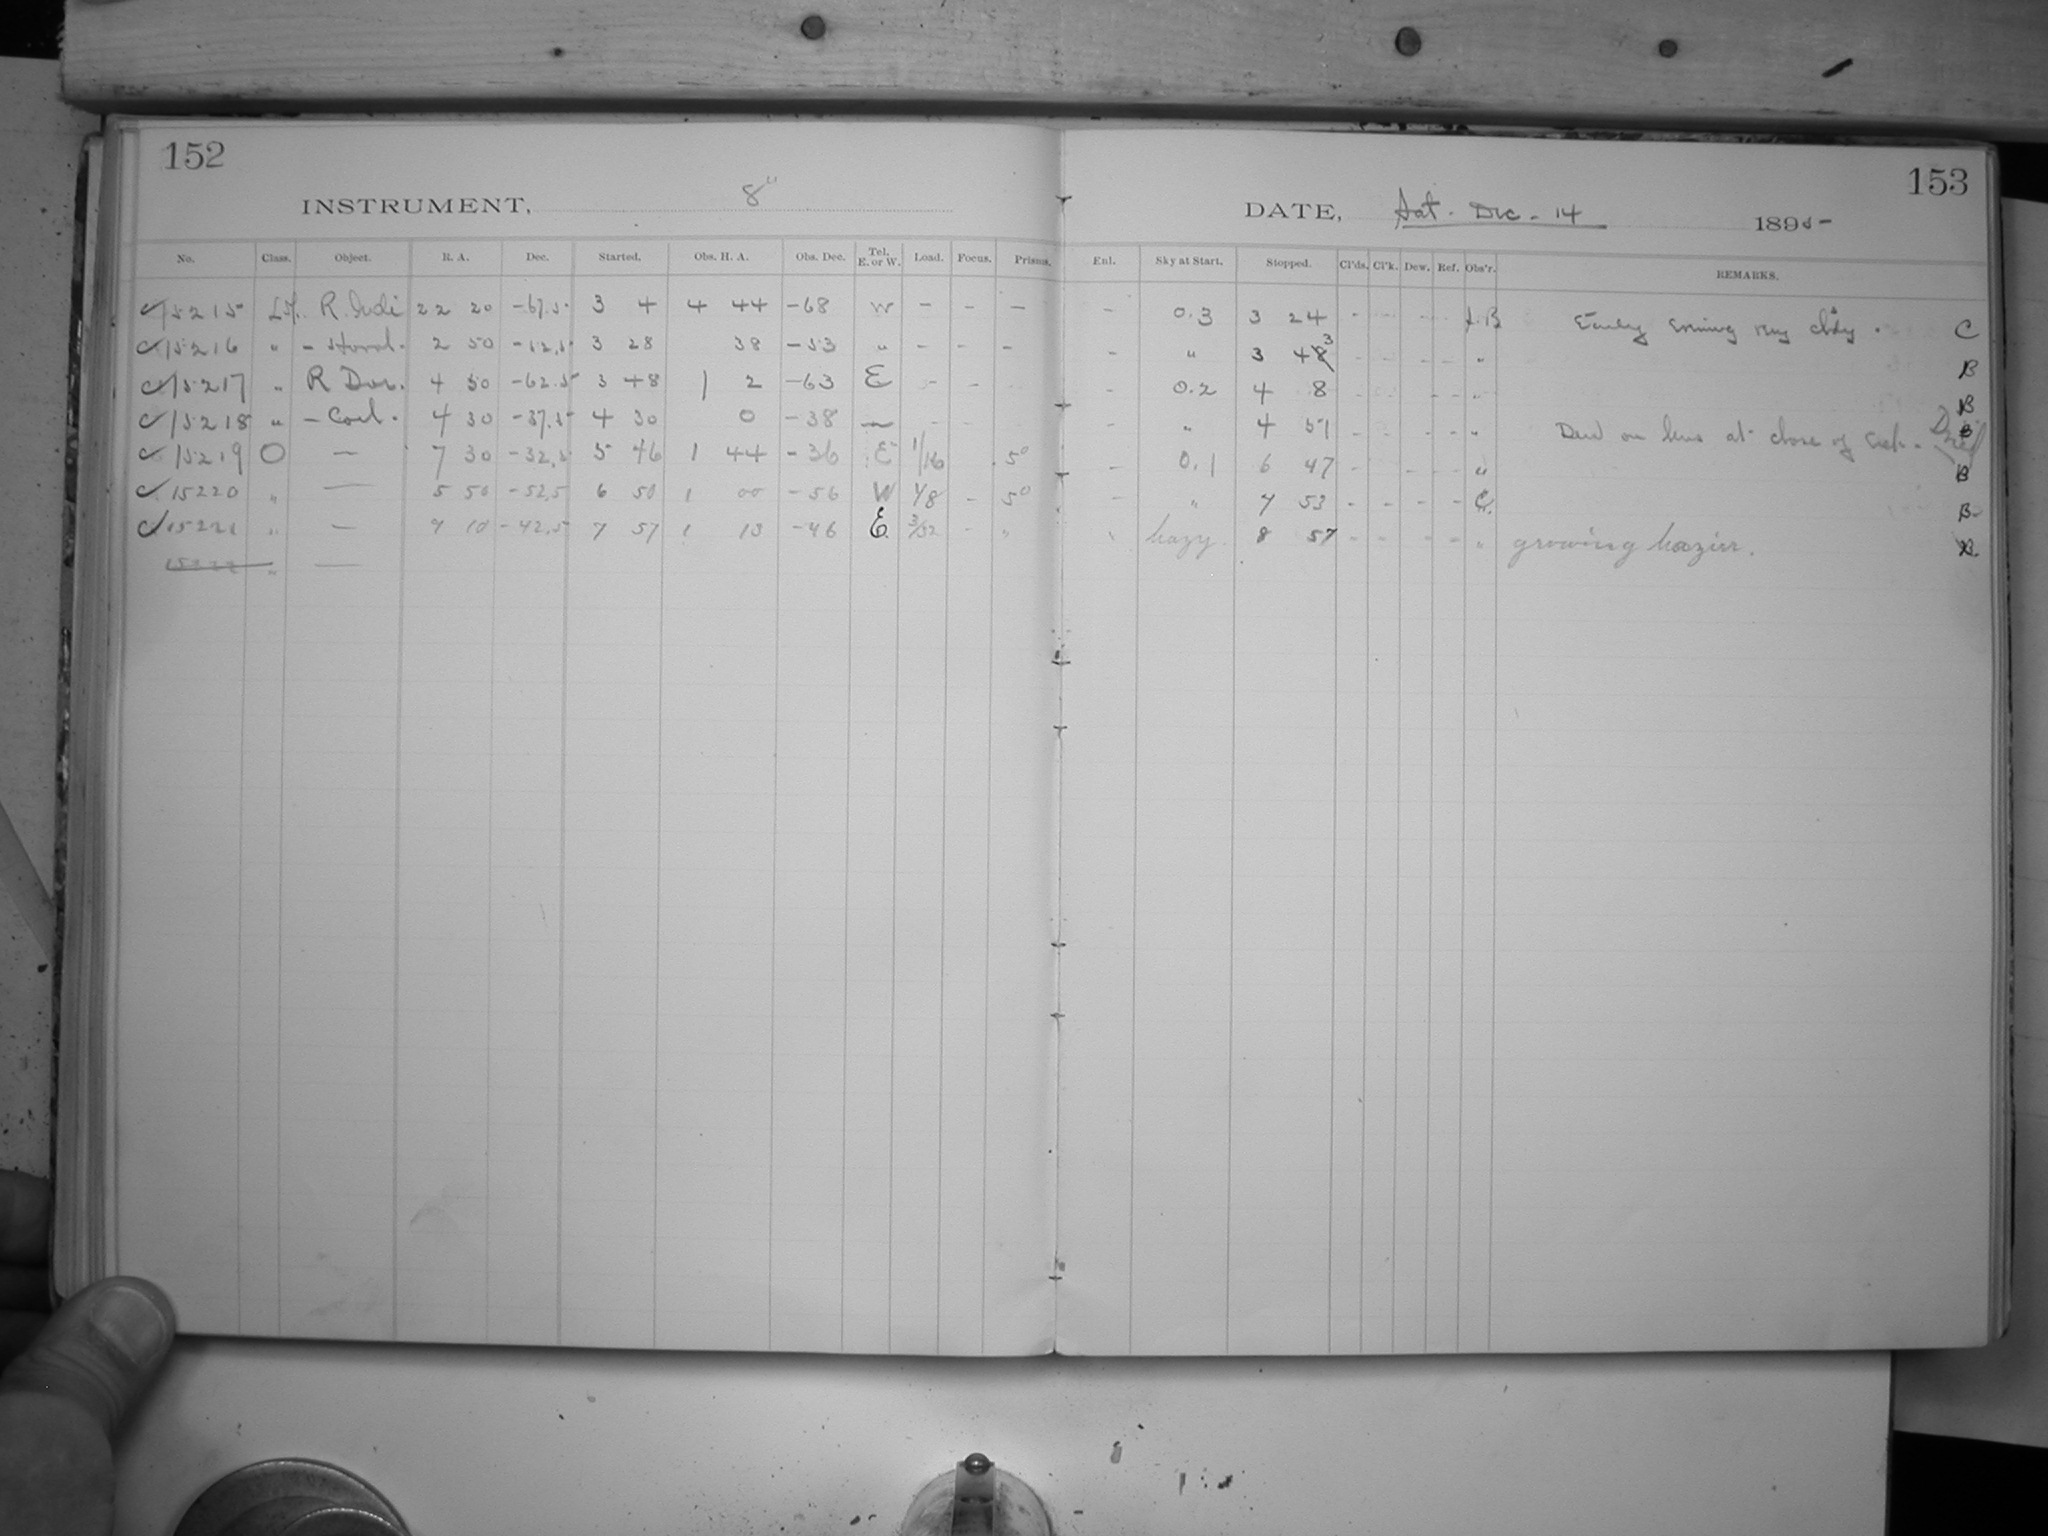 152
153
INSTRUMENT, 8"
DATE, Sat. Dec. 14 1895
No. Class. Object. R. A. Dec. Started. Obs. H. A. Obs. Dec. Tel. E. or W. Load. Focus. Prisms. Enl. Sky at Start. Stopped. Cl'ds. Cl'k. Dew. Ref. Obs'r. REMARKS.
15215 R. Indi 22 20 -67.5 3 4 4 44 -68 W - - - - 0.3 3 24 Early evening very cl'dy. C
15216 " - Horol. 2 50 -52.5 3 28 38 -53 " - - - - " 3 43 " B
15217 " R Dor. 4 50 -62.5 3 48 1 2 -63 E - - - 0.2 4 8 " B
15218 " - Cael. 4 30 -37.5 4 30 0 -38 - " 4 51 " Dew on lens at close of B
15219 O - 7 30 -32.5 5 46 1 44 -36 E 1/16 5° - 0.1 6 47 " B
15220 " - 5 50 -52.5 6 50 1 00 -56 W 1/8 - 5° - " 7 53 C. B
15221 " - 9 10 -42.5 7 57 1 13 -46 E. 3/32 - " " hazy. 8 57 " growing hazier. B.
15222 " -